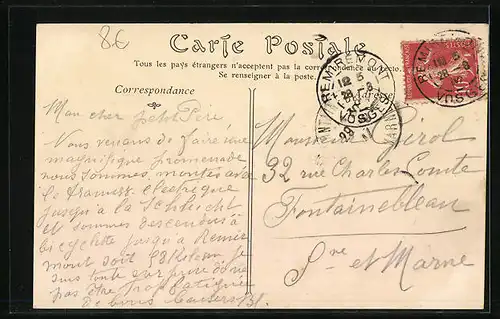 8€
Carte Postale
Tous les pays étrangers n'acceptent pas la correspondance au recto.
Se renseigner à la poste.
Correspondance
Adresse
REMIREMONT
VOSGES
Mon cher petit Père
Nous venons de faire une
magnifique promenade
nous sommes montés avec
le tramway électrique
jusqu'à la Schlucht
et sommes descendus à
bicyclette jusqu'à Remire
mont soit
suis toute surprise de ne
pas être trop fatiguée
Bons baisers
Monsieur Pirol
32 rue Charles Comte
Fontainebleau
Sne et Marne